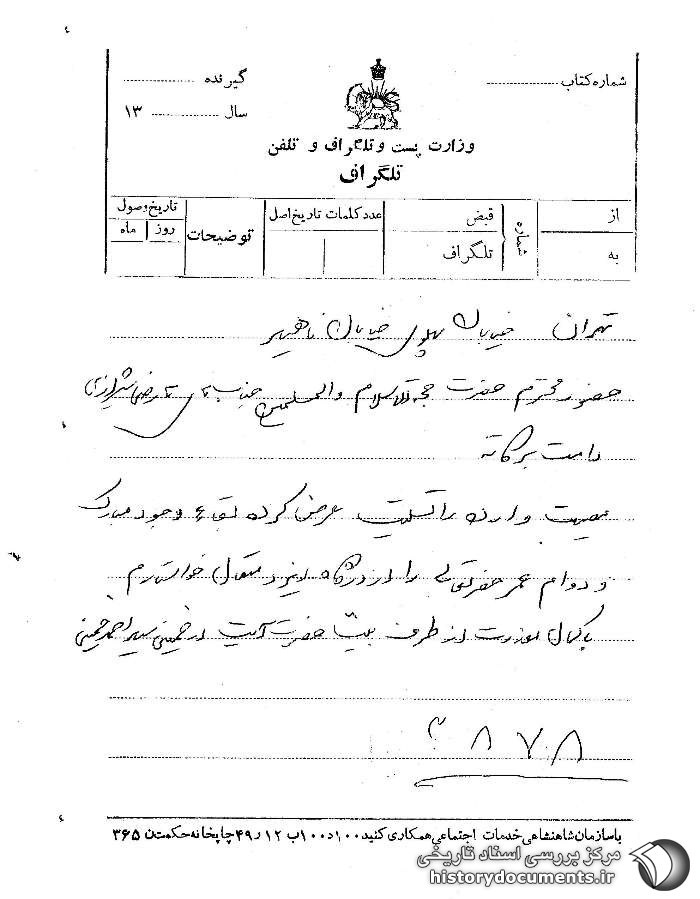 شماره کتاب
گیرنده
سال ۱۳
وزارت پست و تلگراف و تلفن
تلگراف
از
به
شماره
قبض
تلگراف
عدد کلمات
تاریخ اصل
توضیحات
تاریخ وصول
روز
ماه
تهران خیابان پهلوی خیابان ناهید
حضور محترم حضرت حجة الاسلام والمسلمین جناب رضی شیرازی
دامت برکاته
مصیبت وارده را تسلیت عرض کرده بقاء وجود مبارک
و دوام عمر حضرتعالی را از درگاه ایزد متعال خواستارم
با کمال معذرت از طرف بیت حضرت آیت اله خمینی سید احمد خمینی
۸۷۸
با سازمان شاهنشاهی خدمات اجتماعی همکاری کنید ۱۰۰ر۱۰۰ب ۱۲ر۴۹ چاپخانه حکمت ن ۳۶۵
مرکز بررسی اسناد تاریخی
historydocuments.ir